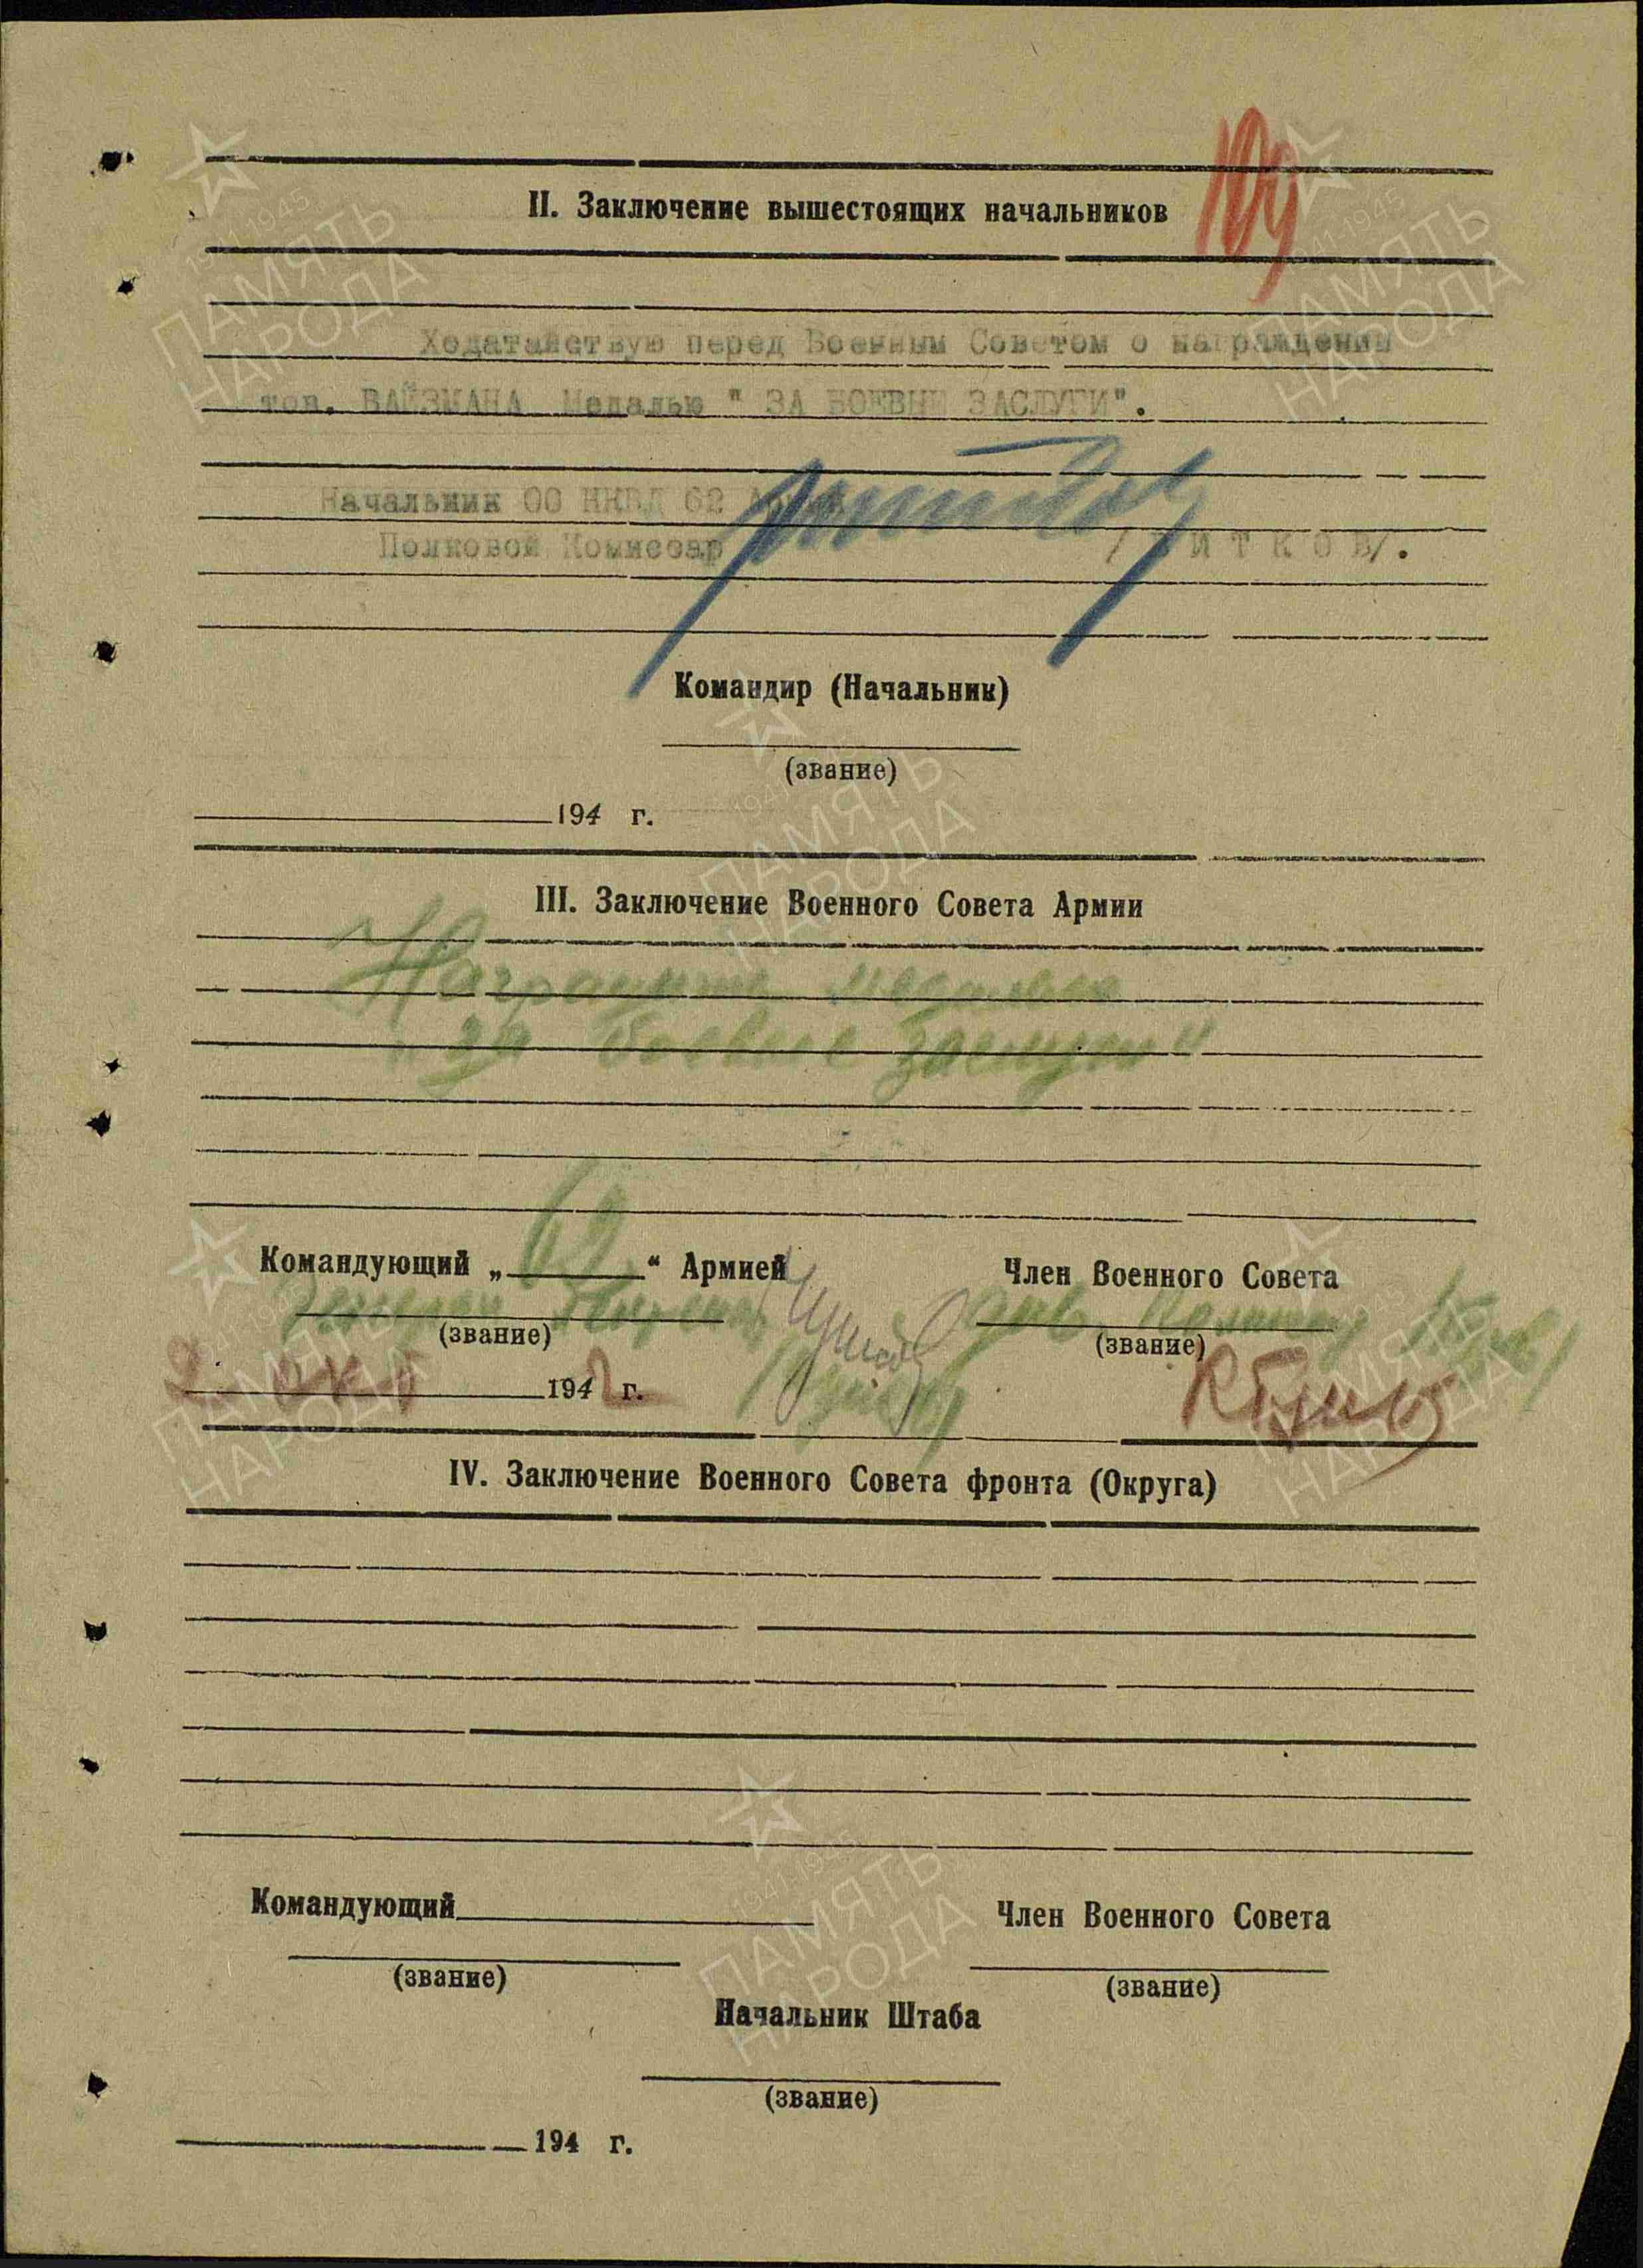 109
II. Заключение вышестоящих начальников
Ходатайствую перед Военным Советом о награждении
тов. ВАЙЗМАНА Медалью " ЗА БОЕВЫЕ ЗАСЛУГИ".
Начальник ОО НКВД 62 Армии
Полковой Комиссар / ВИТКОВ/.
Командир (Начальник)
(звание)
194 г.
III. Заключение Военного Совета Армии
Наградить медалью
"за боевые заслуги"
Командующий „ 62 “ Армией Член Военного Совета
Генерал
(звание) (звание)
2 окт 1942 г.
IV. Заключение Военного Совета фронта (Округа)
Командующий Член Военного Совета
(звание) (звание)
Начальник Штаба
(звание)
194 г.
1941-1945
ПАМЯТЬ
НАРОДА